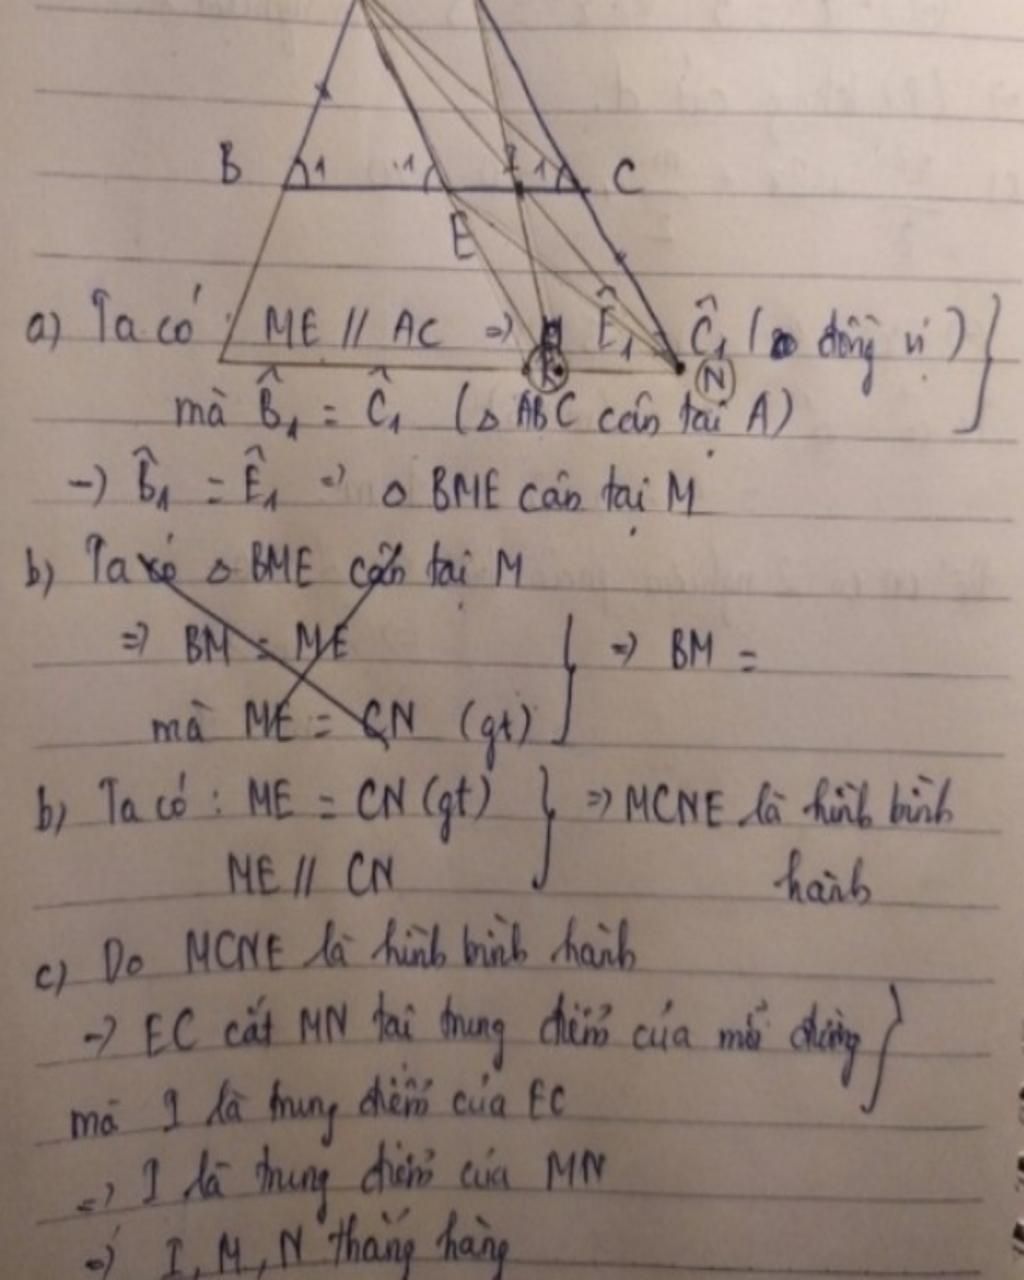 B 1 1 I 1 C
E
a) Ta có : ME // AC => Ê₁ Ĉ₁ ( đồng vị )
K N
mà B̂₁ = Ĉ₁ (△ ABC cân tại A)
-> B̂₁ = Ê₁ => △ BME cân tại M
b) Ta có △ BME cân tại M
=> BM = ME
=> BM =
mà ME = CN (gt)
b) Ta có : ME = CN (gt) => MCNE là hình bình
ME // CN hành
c) Do MCNE là hình bình hành
-> EC cắt MN tại trung điểm của mỗi đường
mà I là trung điểm của EC
=> I là trung điểm của MN
=> I, M, N thẳng hàng